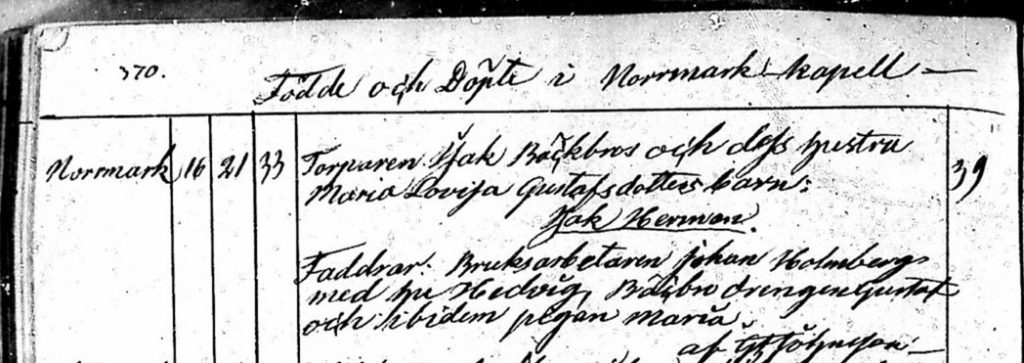 370.
Födde och Döpte i Norrmark kapell —
Norrmark 16 21 33 Torparen Isak Bäckbros och dess hustru 39
Maria Lovisa Gustafsdotters barn:
Isak Herman.
Faddrar: Bruksarbetaren Johan Holmbergs
med hu Hedvig, Bäcbro drengen Gustaf
och ibidem pigan Maria.
af